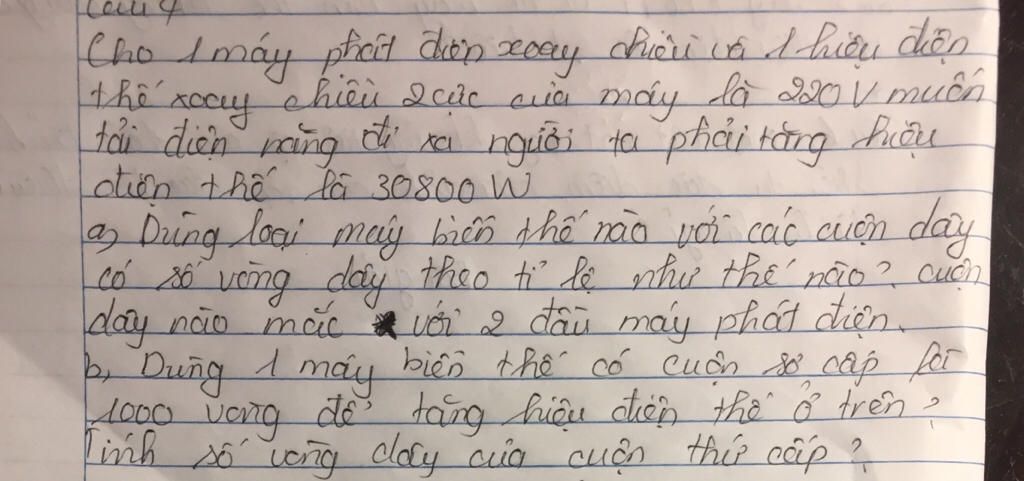 Câu 4
Cho 1 máy phát điện xoay chiều có 1 hiệu điện
thế xoay chiều 2 cực của máy là 220V muốn
tải điện năng đi xa người ta phải tăng hiệu
điện thế là 30800W
a, Dùng loại máy biến thế nào với các cuộn dây
có số vòng dây theo tỉ lệ như thế nào? cuộn
dây nào mắc với 2 đầu máy phát điện.
b, Dùng 1 máy biến thế có cuộn sơ cấp là
1000 vòng để tăng hiệu điện thế ở trên?
Tính số vòng dây của cuộn thứ cấp?